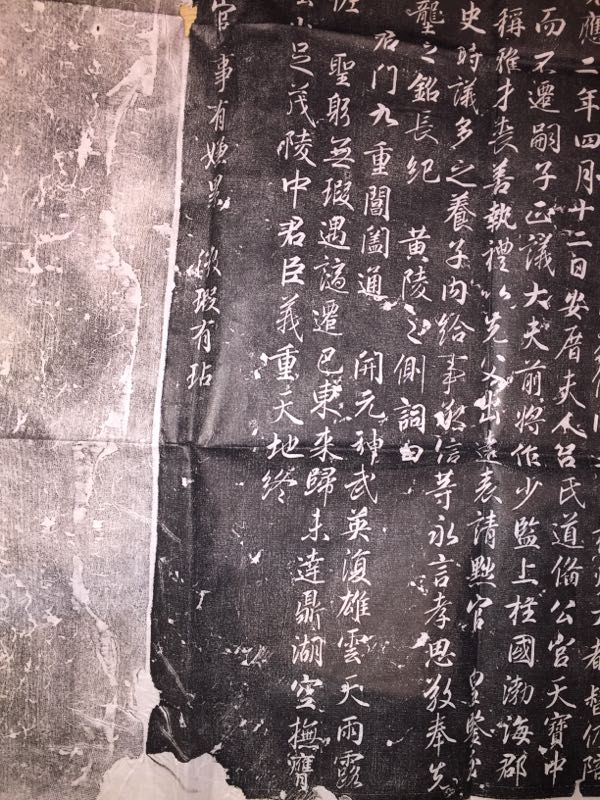 大都督仍陪
應二年四月十二日安厝夫人呂氏道脩公官天寶中
而不遷嗣子正議大夫前將作少監上柱國渤海郡
稱雅才喪善執禮以先父出遠表請黜官 皇鑒
史時議多之養子內給事承信等永言孝思敬奉先
壟之銘長紀 黃陵之側詞曰
君門九重閶闔通 開元神武英復雄雲天雨露
聖躬無瑕遇謫遷巴東來歸未達鼎湖空撫膺
山足茂陵中君臣義重天地終
官 事有嫌 微瑕有玷